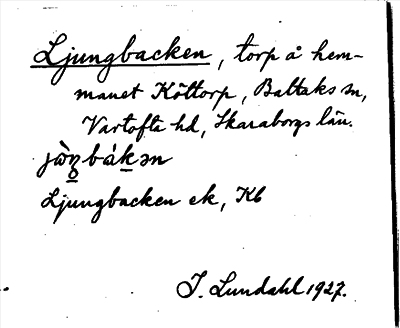 Ljungbacken, torp å hem-
manet Köttorp, Baltaks sn,
Vartofta hd, Skaraborgs län.
jòŋbákən
Ljungbacken ek, Kb
J. Lundahl 1927.